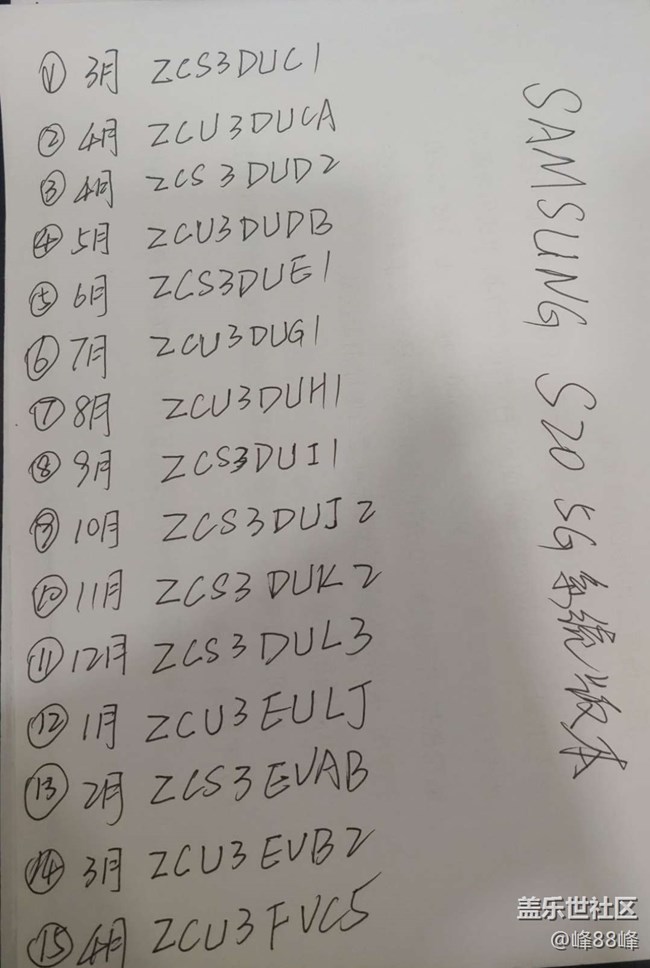 ① 3月 ZCS3DUC1
② 4月 ZCU3DUCA
③ 4月 ZCS3DUD2
④ 5月 ZCU3DUDB
⑤ 6月 ZCS3DUE1
⑥ 7月 ZCU3DUG1
⑦ 8月 ZCU3DUH1
⑧ 9月 ZCS3DUI1
⑨ 10月 ZCS3DUJ2
⑩ 11月 ZCS3DUK2
⑪ 12月 ZCS3DUL3
⑫ 1月 ZCU3EULJ
⑬ 2月 ZCS3EVAB
⑭ 3月 ZCU3EVB2
⑮ 4月 ZCU3FVC5
SAMSUNG S20 5G系统版本
盖乐世社区
@峰88峰